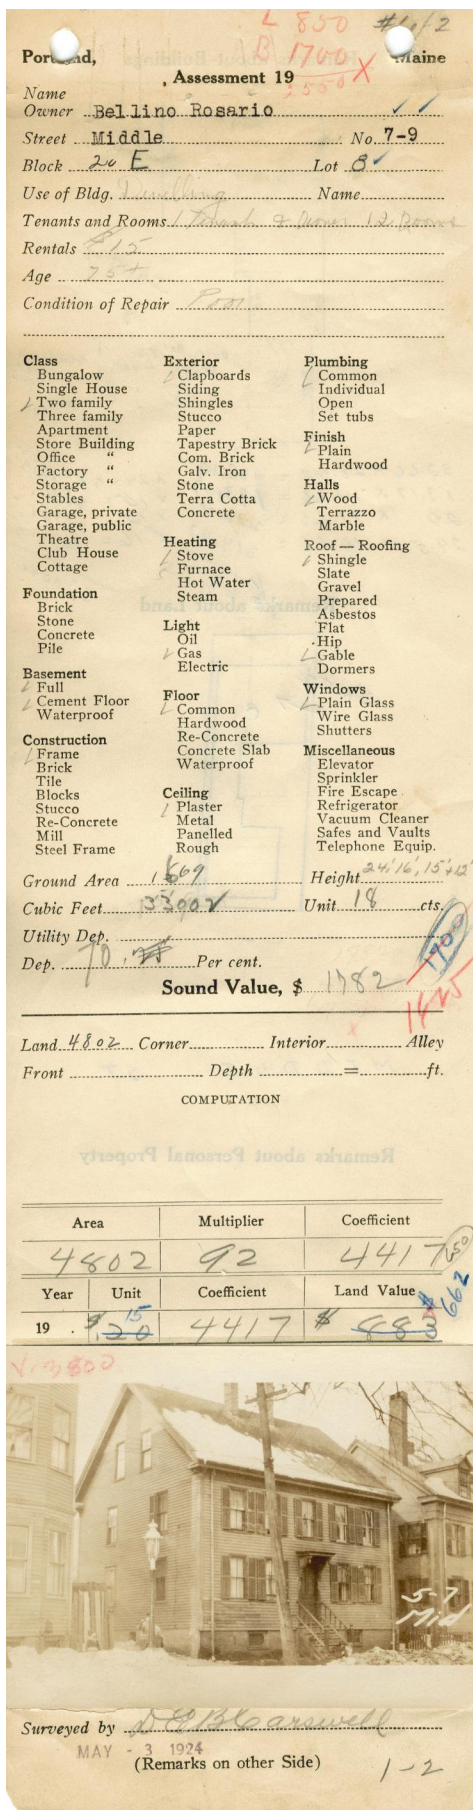 L 850 #1 of 2
B 1700 X
2550
Portland, Maine
Assessment 19
Name
Owner Bellino Rosario
Street Middle No. 7-9
Block 20 E Lot 8
Use of Bldg. Dwelling Name
Tenants and Rooms 1 Tenant & Owner 12 Rooms
Rentals $15
Age 75+
Condition of Repair Poor
Class
Bungalow
Single House
✓ Two family
Three family
Apartment
Store Building
Office "
Factory "
Storage "
Stables
Garage, private
Garage, public
Theatre
Club House
Cottage
Foundation
Brick
Stone
Concrete
Pile
Basement
✓ Full
✓ Cement Floor
Waterproof
Construction
✓ Frame
Brick
Tile
Blocks
Stucco
Re-Concrete
Mill
Steel Frame
Exterior
✓ Clapboards
Siding
Shingles
Stucco
Paper
Tapestry Brick
Com. Brick
Galv. Iron
Stone
Terra Cotta
Concrete
Heating
✓ Stove
Furnace
Hot Water
Steam
Light
Oil
✓ Gas
Electric
Floor
✓ Common
Hardwood
Re-Concrete
Concrete Slab
Waterproof
Ceiling
✓ Plaster
Metal
Panelled
Rough
Plumbing
✓ Common
Individual
Open
Set tubs
Finish
✓ Plain
Hardwood
Halls
✓ Wood
Terrazzo
Marble
Roof — Roofing
✓ Shingle
Slate
Gravel
Prepared
Asbestos
Flat
Hip
✓ Gable
Dormers
Windows
✓ Plain Glass
Wire Glass
Shutters
Miscellaneous
Elevator
Sprinkler
Fire Escape
Refrigerator
Vacuum Cleaner
Safes and Vaults
Telephone Equip.
Ground Area Height 24' 16', 15'+12'
Cubic Feet 33002 Unit 18 cts.
Utility Dep.
Dep. 70 Per cent. 1700
Sound Value, $ 1782
Land 4802 Corner Interior Alley
Front Depth = ft.
COMPUTATION
Area Multiplier Coefficient
4802 92 4417
Year Unit Coefficient Land Value
15 $662
19 . $ .20 4417 $ 883
5-7
Mid
Surveyed by
MAY - 3 1924
(Remarks on other Side)
1-2